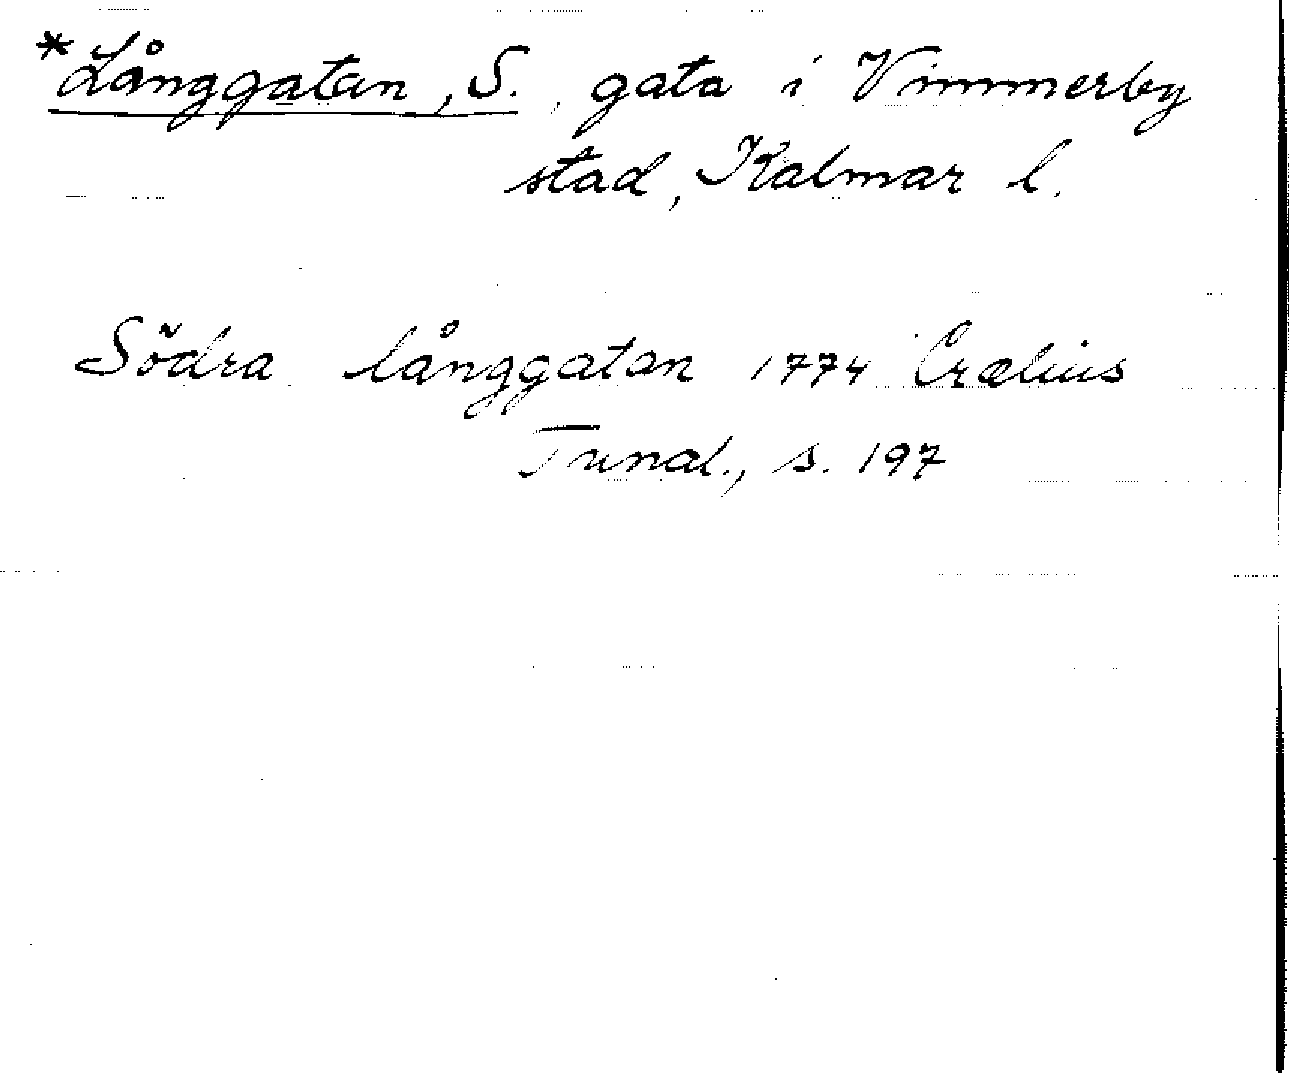 *Långgatan, S., gata i Vimmerby
stad, Kalmar l.
Södra långgatan 1774 Crælius
Tunal., s. 197